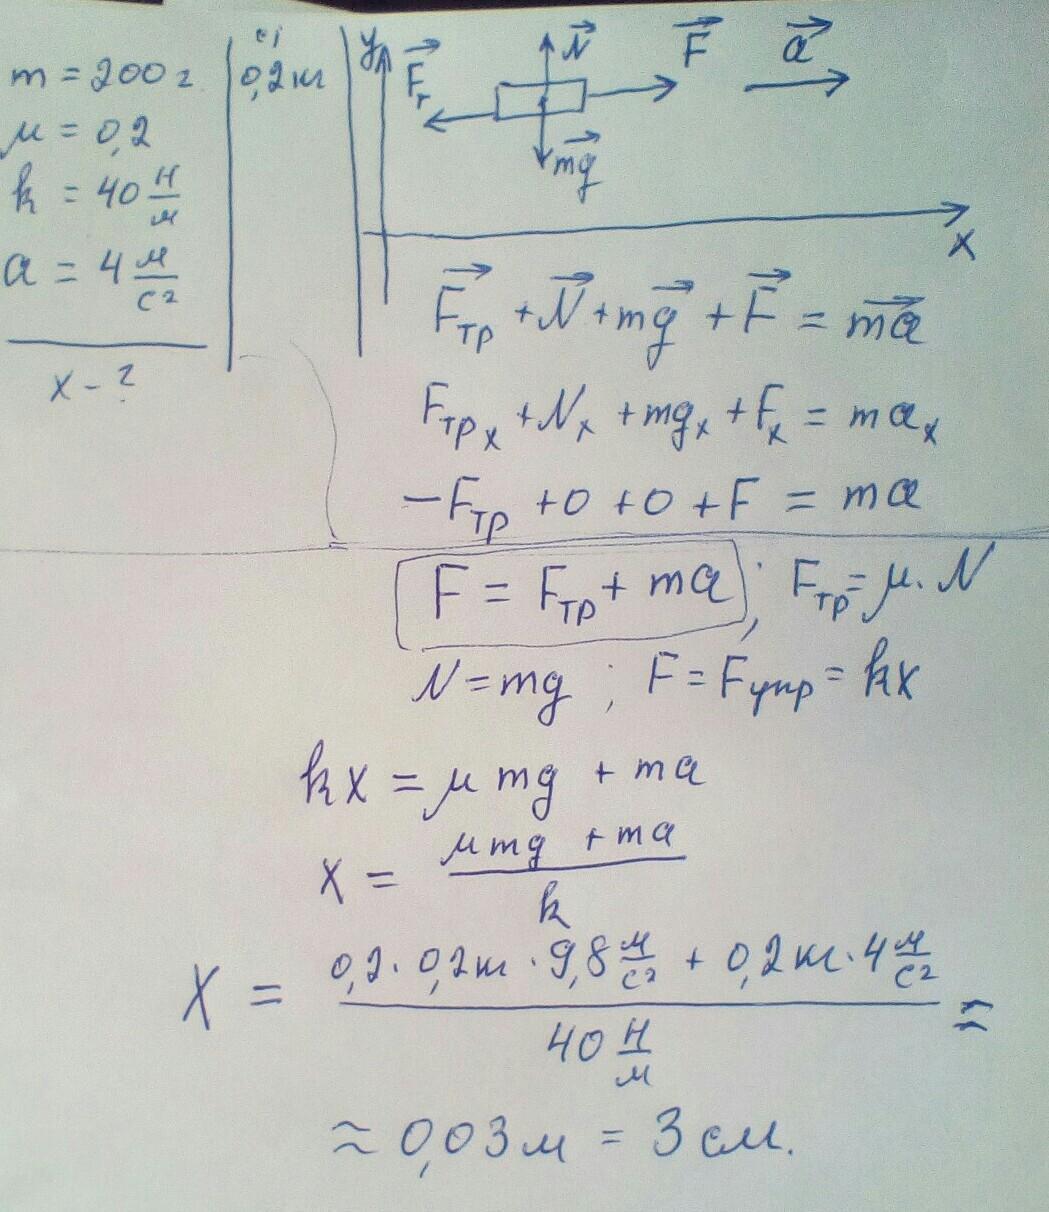 m = 200 г
си
0,2 кг
μ = 0,2
k = 40 Н/м
a = 4 м/с²
x - ?
y
Fт
N
F
a
mg
x
Fтр + N + mg + F = ma
Fтрx + Nx + mgx + Fx = max
-Fтр + 0 + 0 + F = ma
F = Fтр + ma ; Fтр = μ · N
N = mg ; F = Fупр = kx
kx = μmg + ma
x = (μmg + ma)/k
x = (0,2 · 0,2кг · 9,8 м/с² + 0,2кг · 4 м/с²)/(40 Н/м) ≈
≈ 0,03м = 3 см.